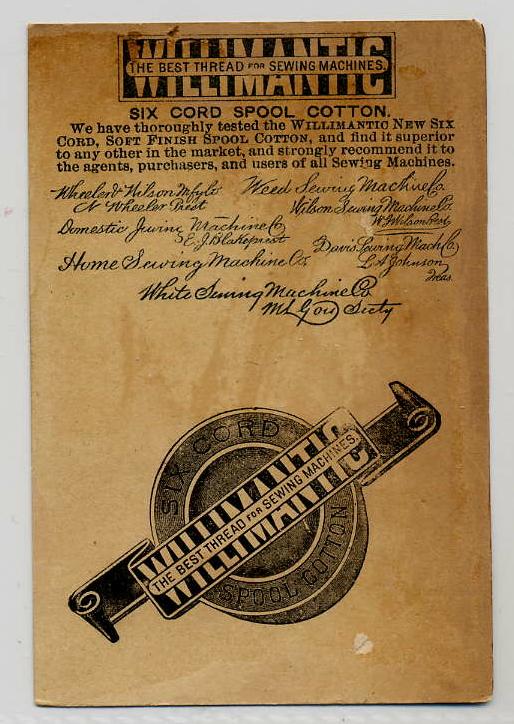 WILLIMANTIC
THE BEST THREAD FOR SEWING MACHINES.
WILLIMANTIC
SIX CORD SPOOL COTTON.
We have thoroughly tested the WILLIMANTIC NEW SIX
CORD, SOFT FINISH SPOOL COTTON, and find it superior
to any other in the market, and strongly recommend it to
the agents, purchasers, and users of all Sewing Machines.
Wheeler & Wilson Mfg Co
N Wheeler Prest
Weed Sewing Machine Co.
Wilson Sewing Machine Co
W.G. Wilson Prest
Domestic Sewing Machine Co
E.J. Blake prest
Davis Sewing Mach Co.
L A Johnson
Treas.
Home Sewing Machine Co,
White Sewing Machine Co
SIX CORD
WILLIMANTIC
THE BEST THREAD FOR SEWING MACHINES.
WILLIMANTIC
SPOOL COTTON